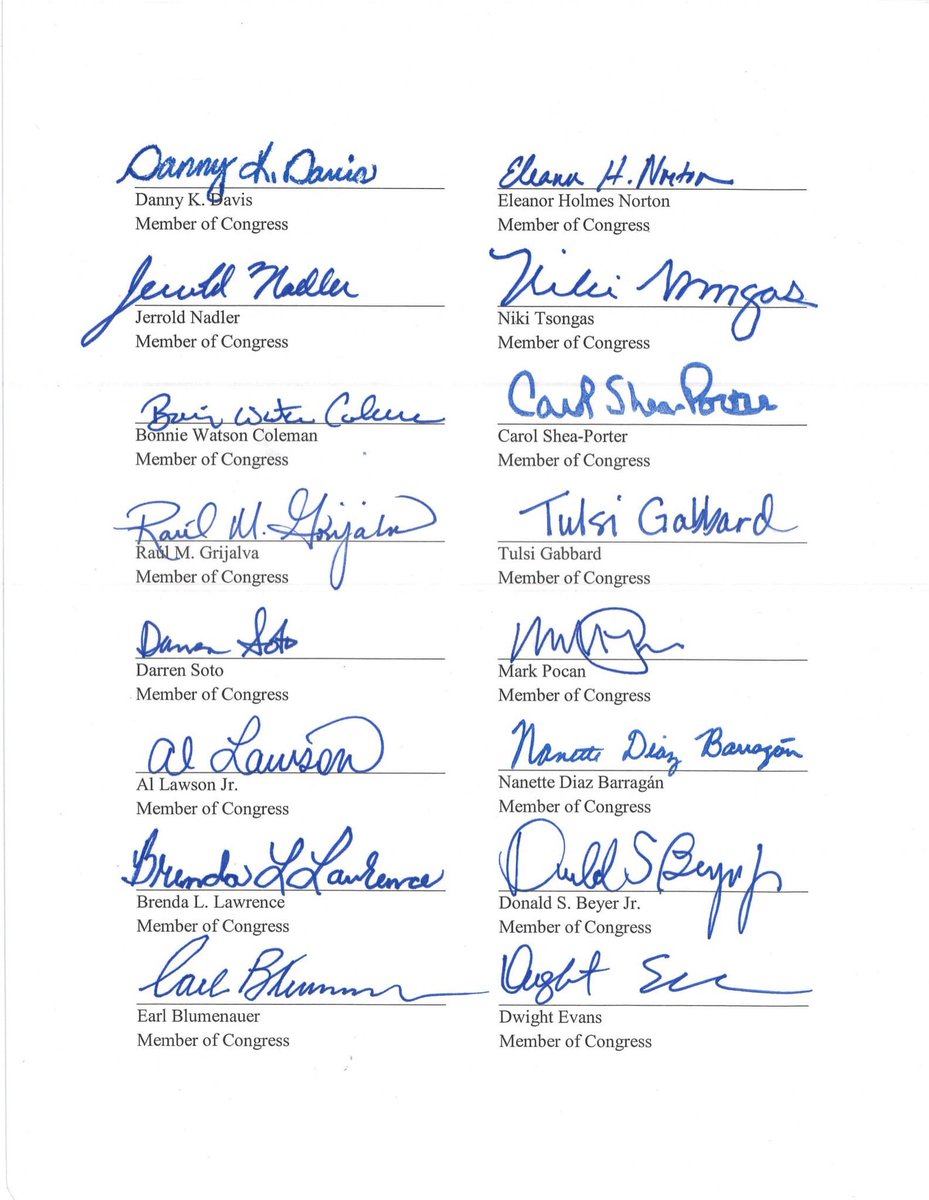 Danny K. Davis
Danny K. Davis
Member of Congress
Eleanor H. Norton
Eleanor Holmes Norton
Member of Congress
Jerrold Nadler
Jerrold Nadler
Member of Congress
Niki Tsongas
Niki Tsongas
Member of Congress
Bonnie Watson Coleman
Member of Congress
Carol Shea-Porter
Carol Shea-Porter
Member of Congress
Raúl M. Grijalva
Raúl M. Grijalva
Member of Congress
Tulsi Gabbard
Tulsi Gabbard
Member of Congress
Darren Soto
Darren Soto
Member of Congress
Mark Pocan
Member of Congress
Al Lawson
Al Lawson Jr.
Member of Congress
Nanette Diaz Barragán
Nanette Diaz Barragán
Member of Congress
Brenda L Lawrence
Brenda L. Lawrence
Member of Congress
Donald S Beyer Jr
Donald S. Beyer Jr.
Member of Congress
Earl Blumenauer
Member of Congress
Dwight
Dwight Evans
Member of Congress